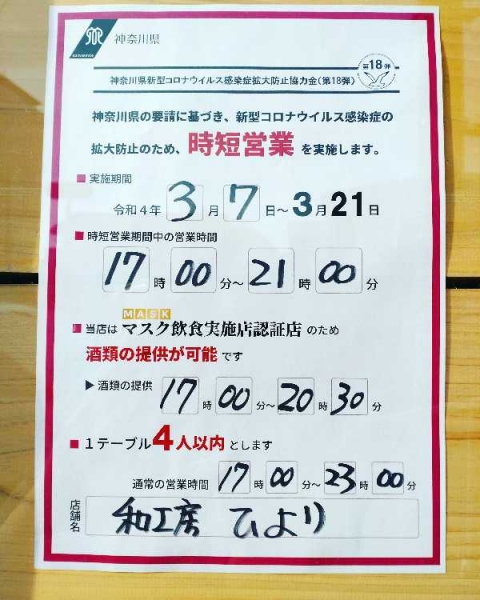 神奈川県
第18弾
神奈川県新型コロナウイルス感染症拡大防止協力金(第18弾)
神奈川県の要請に基づき、新型コロナウイルス感染症の
拡大防止のため、時短営業を実施します。
■ 実施期間
令和4年 3月7日～3月21日
■ 時短営業期間中の営業時間
17時00分～21時00分
MASK
■ 当店は マスク飲食実施店認証店 のため
酒類の提供が可能です
▶酒類の提供 17時00分～20時30分
■ 1テーブル4人以内とします
通常の営業時間 17時00分～23時00分
店舗名 和工房 ひより